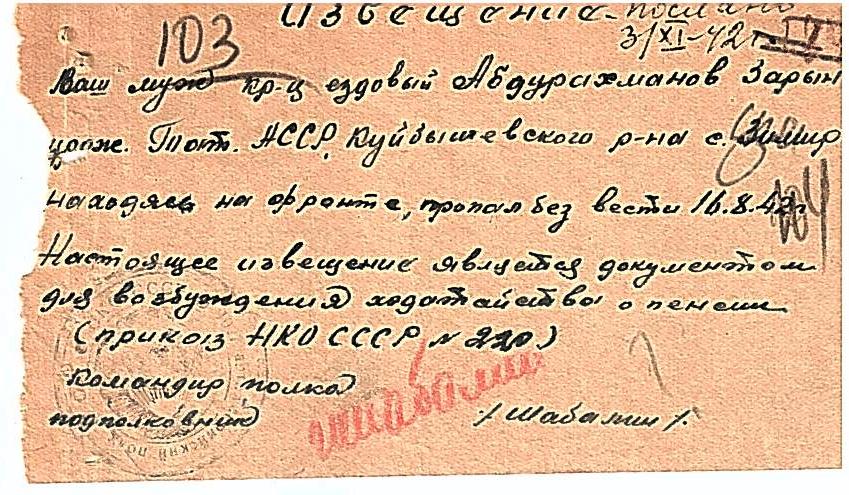 Извещение. послано
103 3/XI-42г.
Ваш муж кр-ц ездовый Абдурахманов Зарын
урож. Тат. АССР, Куйбышевского р-на с.
находясь на фронте, пропал без вести 16.8.42г
104
Настоящее извещение является документом
для возбуждения ходатайства о пенсии
(приказ НКО СССР N 220)
Командир полка
подполковник /Шабалин/.
Шабалин